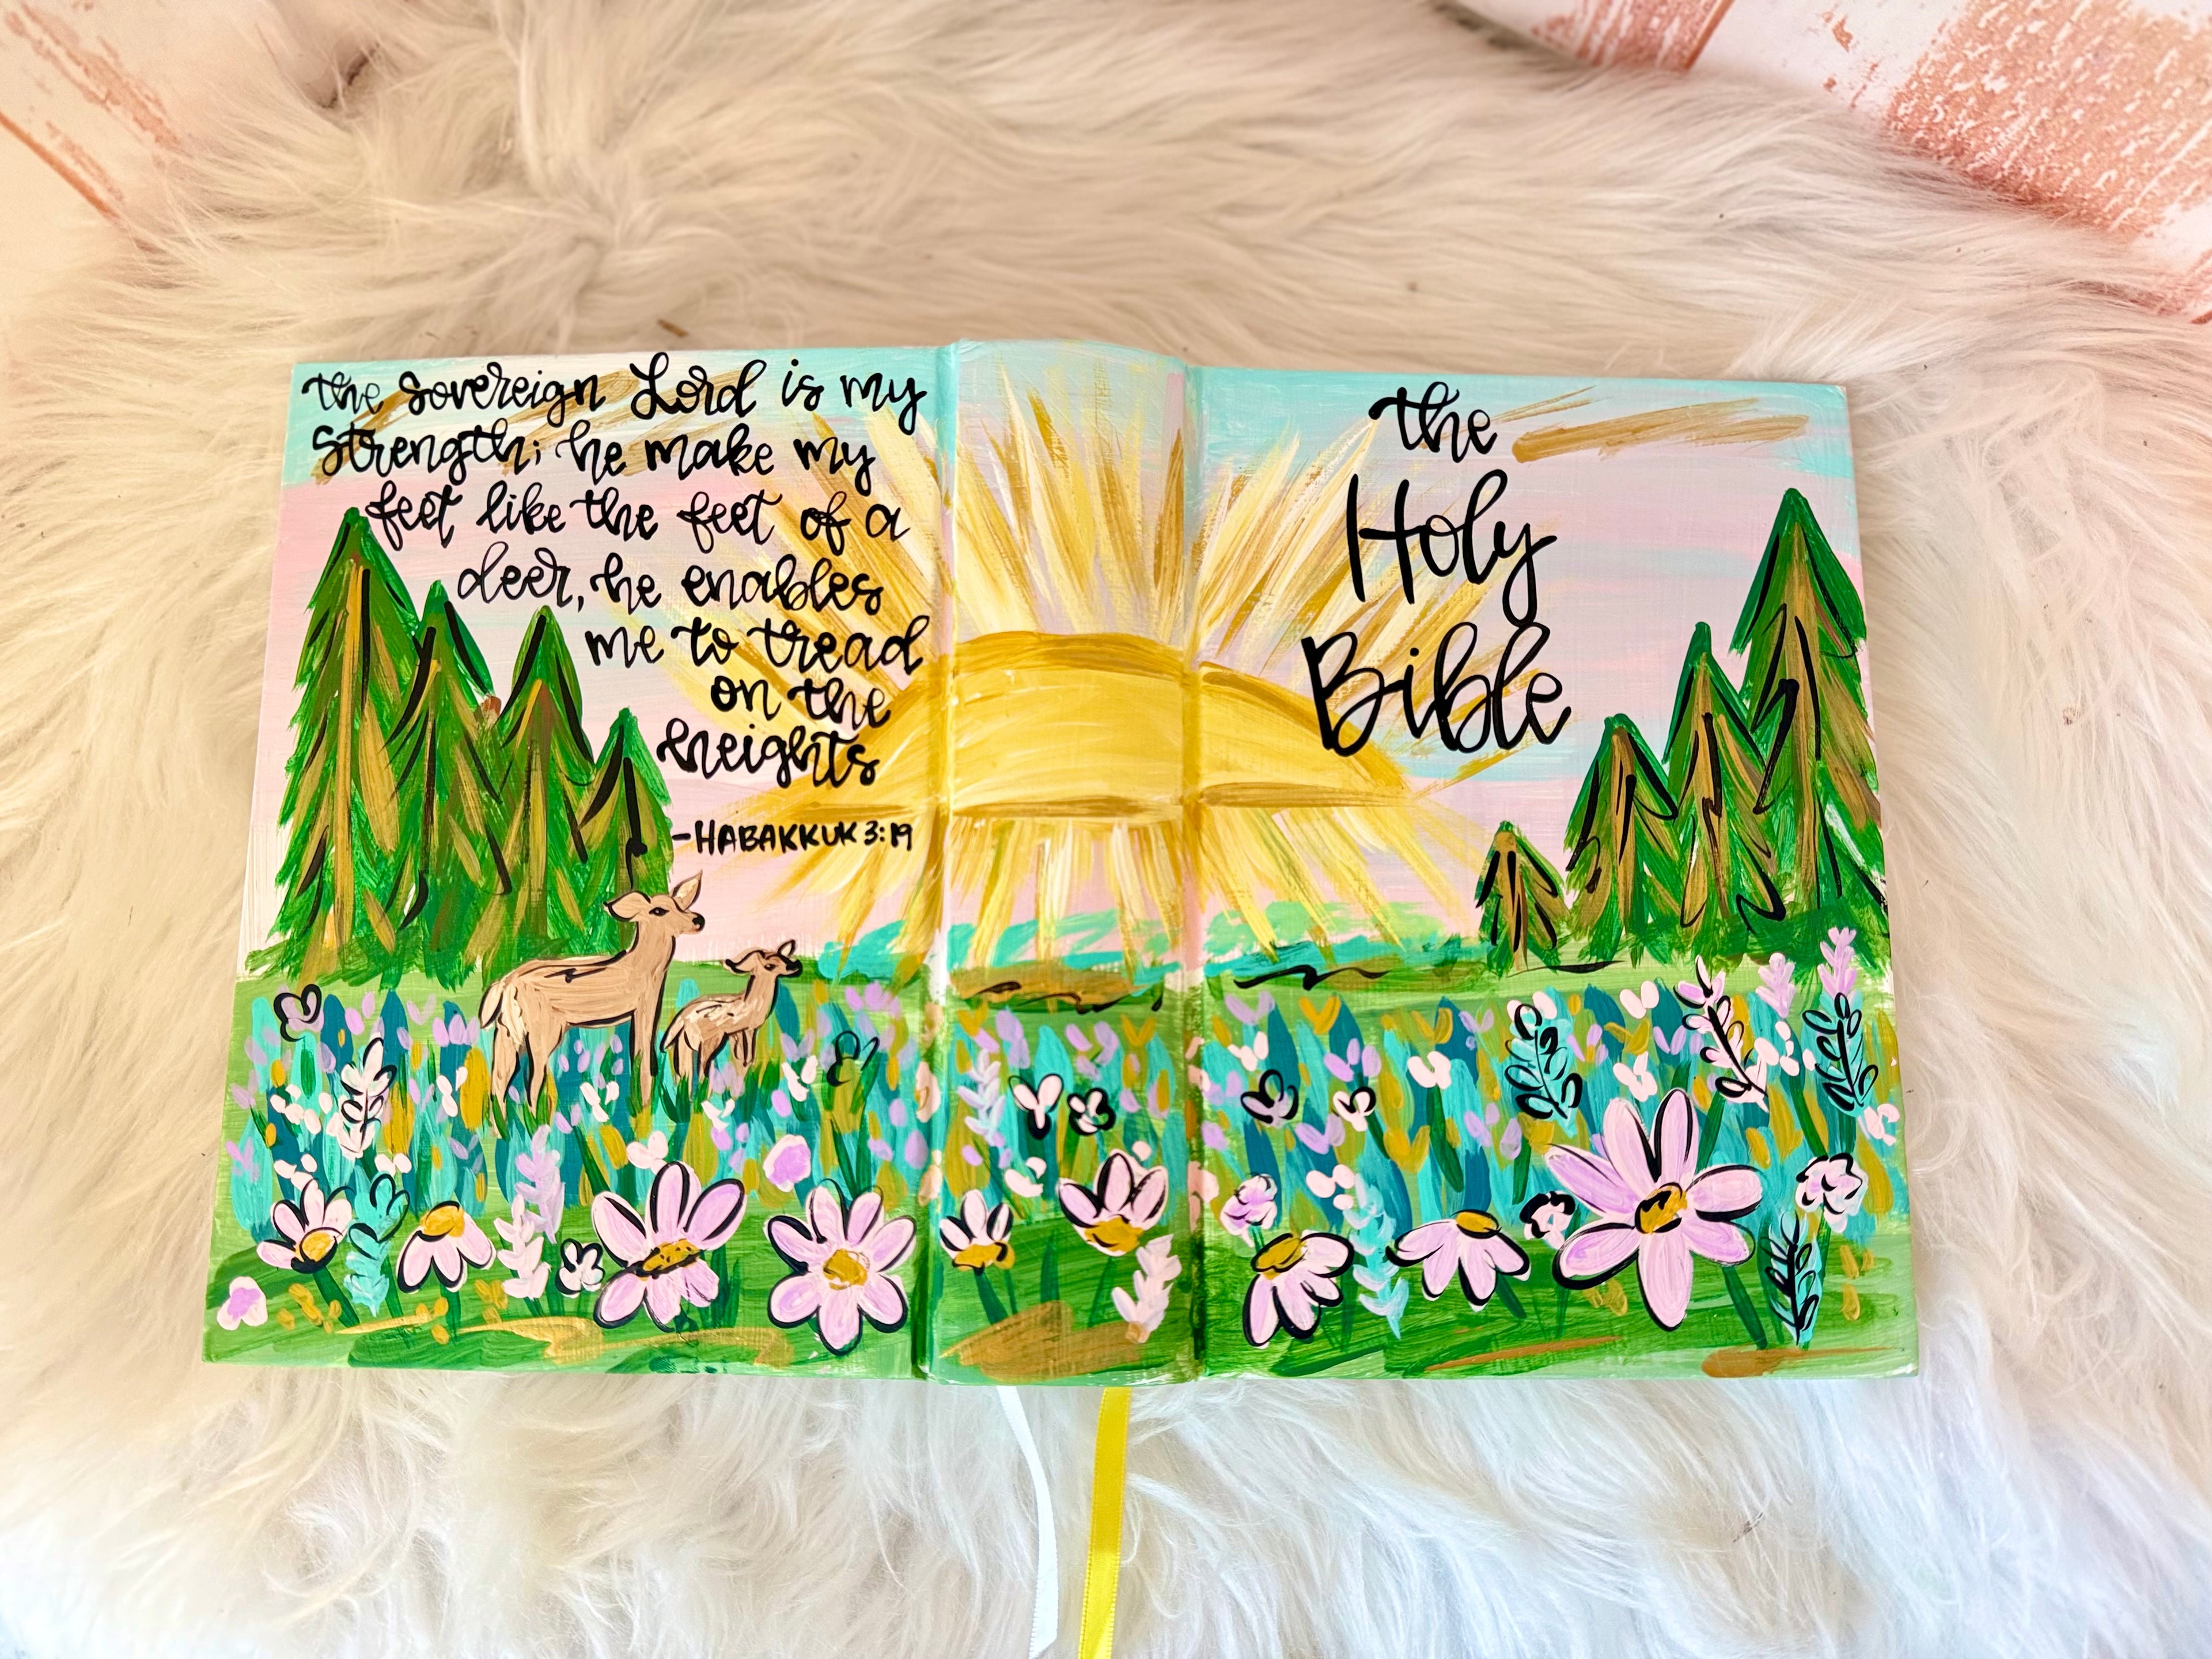 the Sovereign Lord is my
Strength; he make my
feet like the feet of a
deer, he enables
me to tread
on the
heights
-HABAKKUK 3:19
the
Holy
Bible